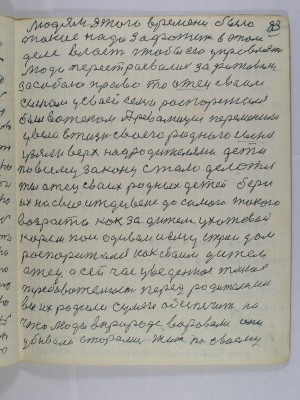 83
людям этого времени было
такие надо заротик в этом
деле власть чтобы его управлять
люди перестраивались за
за собою право то отец своим
сынам у своей семьи распоряжался
был отцом А революция переменила
увела в жизнь своего родного сына
узяли верх над родителями дети
по всему закону стало делать
ты отец своих родных детей бери
их на свое иждивение до самого такого
возраста как за дитем ухаживай
корми пои одевай и ему строй дом
распоряжайся как своим дитем
отец а сейчас уведенное такая
требовательность перед родителями
вы их родили сумей обеспечить на
что люди в природе воровали они
убивали старались жить по своему